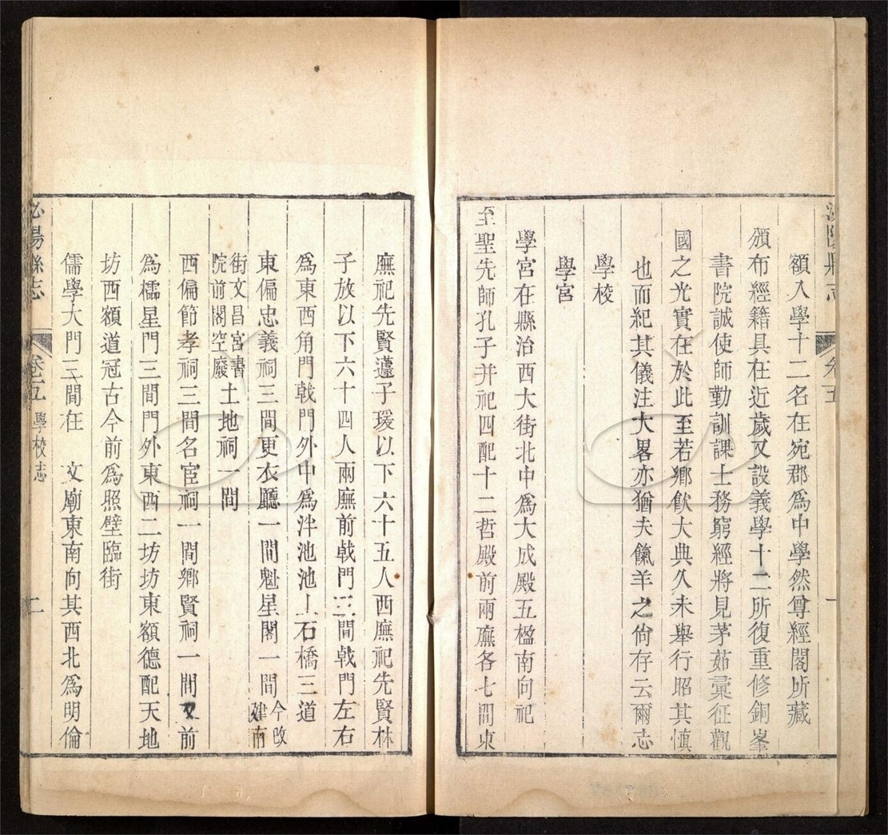 泌陽縣志
卷五
一
額入學十二名在宛郡為中學然尊經閣所藏
頒布經籍具在近歲又設義學十二所復重修銅峯
書院誠使師勤訓課士務窮經將見茅茹彙征觀
國之光實在於此至若鄉飲大典久未舉行昭其慎
也而紀其儀注大畧亦猶夫餼羊之尙存云爾志
學校
學宮
學宮在縣治西大街北中為大成殿五楹南向祀
至聖先師孔子并祀四配十二哲殿前兩廡各七間東
廡祀先賢蘧子瑗以下六十五人西廡祀先賢林
子放以下六十四人兩廡前戟門三間戟門左右
為東西角門戟門外中為泮池池上石橋三道
東偏忠義祠三間更衣廳一間魁星閣一間今改建南
街文昌宮書院前閣空廢土地祠一間
西偏節孝祠三間名宦祠一間鄉賢祠一間又前
為櫺星門三間門外東西二坊坊東額德配天地
坊西額道冠古今前為照壁臨街
儒學大門三間在 文廟東南向其西北為明倫
泌陽縣志
卷五
學校志
二